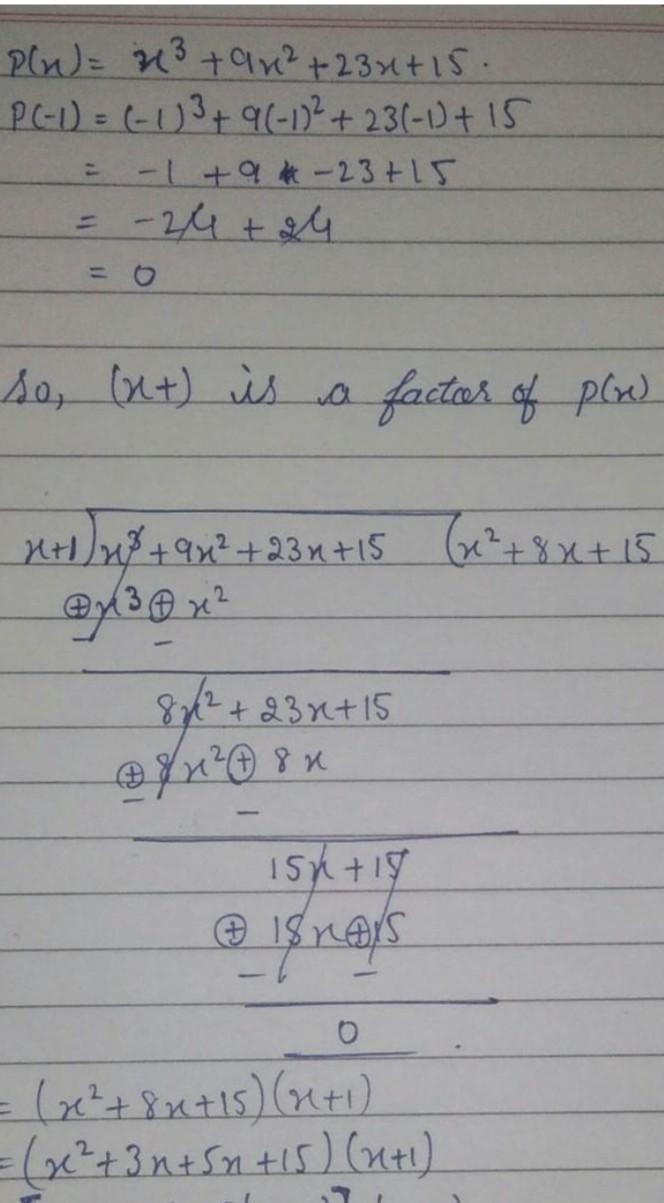 p(x) = x³ + 9x² + 23x + 15.
P(-1) = (-1)³ + 9(-1)² + 23(-1) + 15
= -1 + 9 -23 + 15
= -24 + 24
= 0
So, (x+) is a factor of p(x)
x+1)x³ + 9x² + 23x + 15 (x² + 8x + 15
⊕x³ ⊕ x²
− −
8x² + 23x + 15
⊕ 8x² ⊕ 8x
− −
15x + 15
⊕ 15x ⊕ 15
− −
0 .
= (x² + 8x + 15)(x+1)
= (x² + 3x + 5x + 15)(x+1)